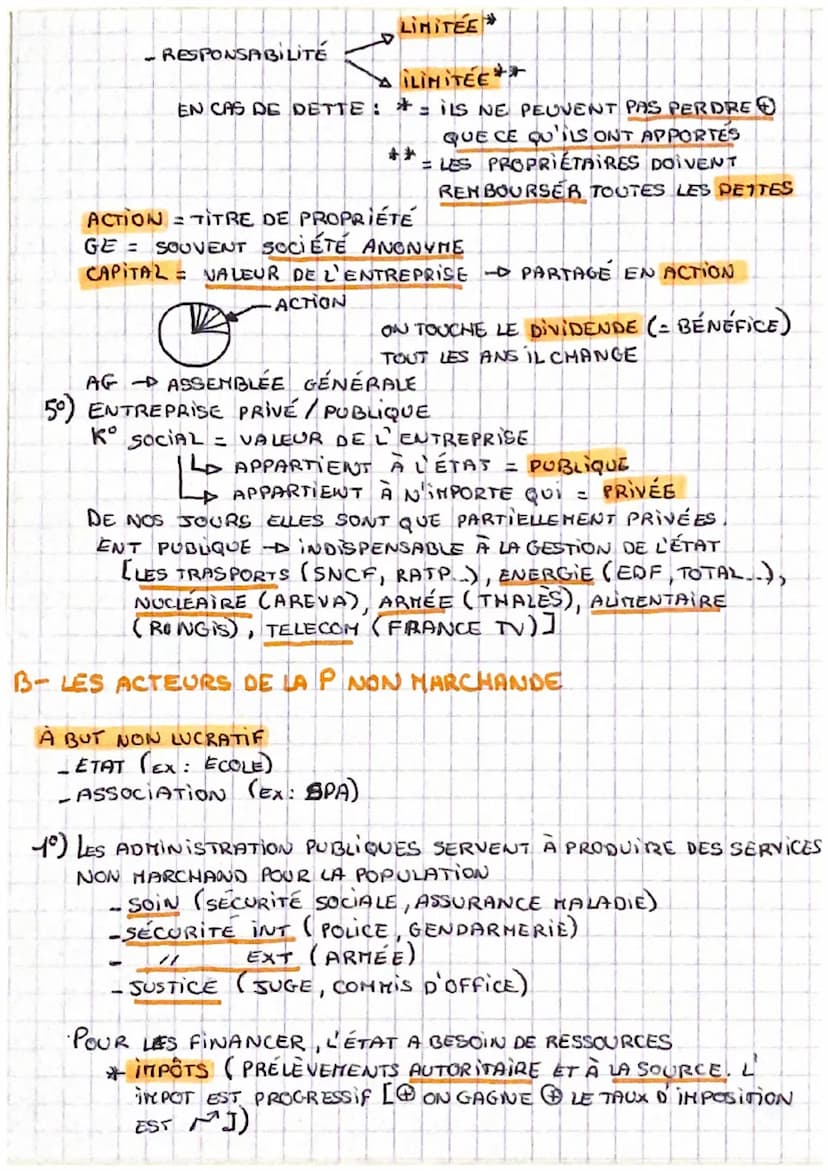 LIMITÉE *
- RESPONSABILITÉ
ILIMITÉE **
EN CAS DE DETTE : * = ILS NE PEUVENT PAS PERDRE ⊕
QUE CE QU'ILS ONT APPORTÉS
** = LES PROPRIÉTAIRES DOIVENT
REMBOURSER TOUTES LES DETTES
ACTION = TITRE DE PROPRIÉTÉ
GE = SOUVENT SOCIÉTÉ ANONYME
CAPITAL = VALEUR DE L'ENTREPRISE → PARTAGÉ EN ACTION
ACTION
ON TOUCHE LE DIVIDENDE (= BÉNÉFICE)
TOUT LES ANS IL CHANGE
AG → ASSEMBLÉE GÉNÉRALE
5°) ENTREPRISE PRIVÉ / PUBLIQUE
K° SOCIAL = VALEUR DE L'ENTREPRISE
↳ APPARTIENT À L'ÉTAT = PUBLIQUE
↳ APPARTIENT À N'IMPORTE QUI = PRIVÉE
DE NOS JOURS ELLES SONT QUE PARTIELLEMENT PRIVÉES.
ENT PUBLIQUE → INDISPENSABLE À LA GESTION DE L'ÉTAT
[LES TRASPORTS (SNCF, RATP...), ENERGIE (EDF, TOTAL...),
NUCLÉAIRE (AREVA), ARMÉE (THALÈS), ALIMENTAIRE
(RONGIS), TELECOM (FRANCE TV)]
B- LES ACTEURS DE LA P NON MARCHANDE
À BUT NON LUCRATIF
- ETAT (EX : ECOLE)
- ASSOCIATION (EX : SPA)
1°) LES ADMINISTRATION PUBLIQUES SERVENT À PRODUIRE DES SERVICES
NON MARCHAND POUR LA POPULATION
- SOIN (SÉCURITÉ SOCIALE, ASSURANCE MALADIE)
- SÉCURITÉ INT (POLICE, GENDARMERIE)
- // EXT (ARMÉE)
- JUSTICE (JUGE, COMMIS D'OFFICE)
POUR LES FINANCER, L'ÉTAT A BESOIN DE RESSOURCES
* IMPÔTS (PRÉLÈVEMENTS AUTORITAIRE ET À LA SOURCE. L'
IMPOT EST PROGRESSIF [⊕ ON GAGNE ⊕ LE TAUX D'IMPOSITION
EST ↗])